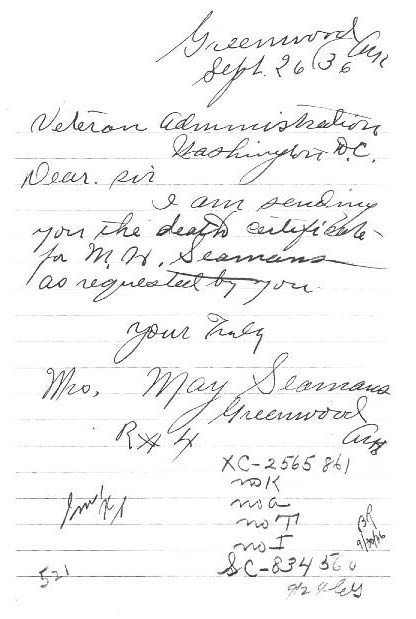 Greenwood Ark
Sept. 26/36
Veteran Administration
Washington D.C.
Dear. sir
I am sending
you the death certificate
for M. W. Seamans
as requested by you.
your Truly
Mrs. May Seamans
Greenwood
R#4 Ark
XC-2565861
no K
no a
no T
no I
9/30/36
SC-834560
521